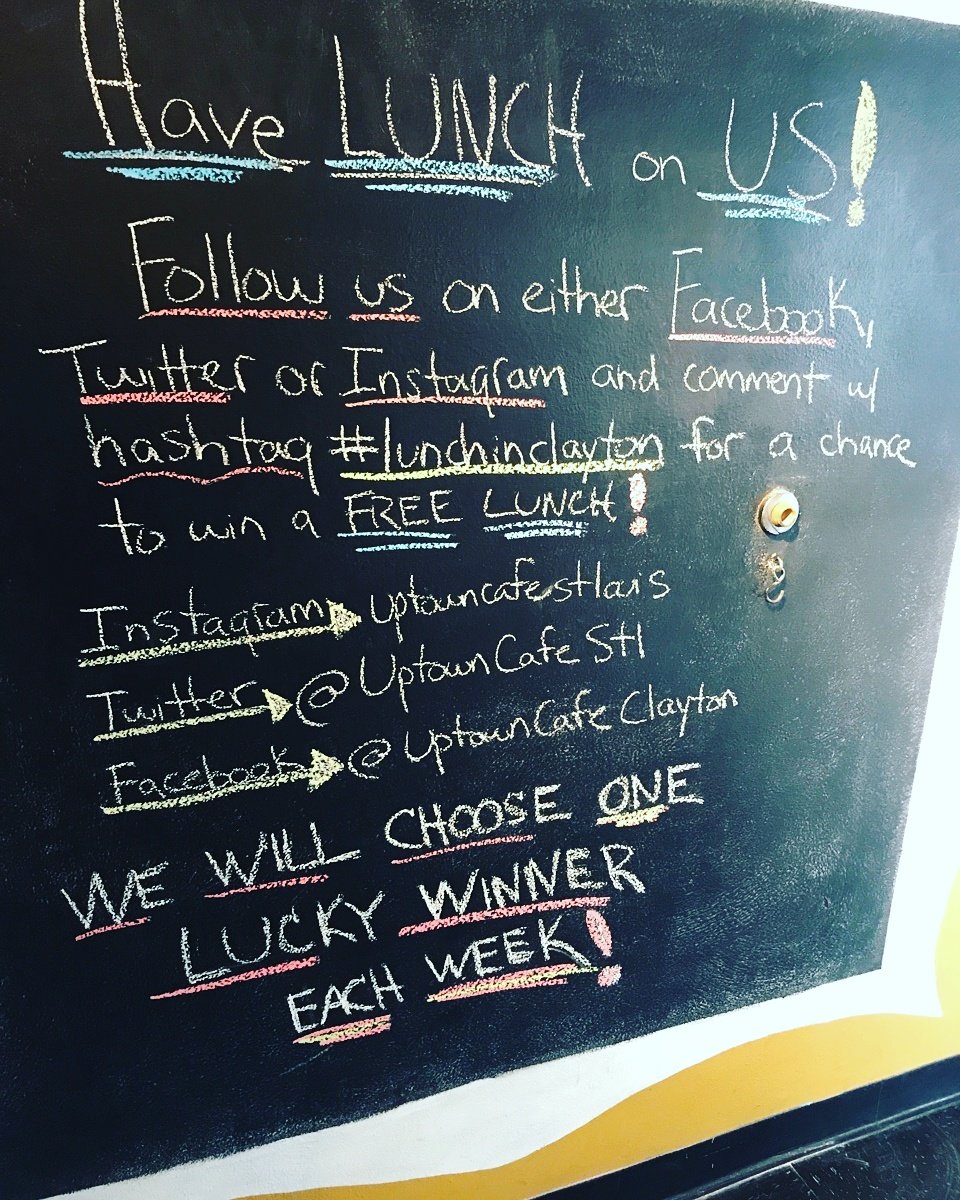 Have LUNCH on US!
Follow us on either Facebook,
Twitter or Instagram and comment w/
hashtag #lunchinclayton for a chance
to win a FREE LUNCH!
Instagram uptowncafestlouis
Twitter @UptownCafeStl
Facebook @UptownCafeClayton
WE WILL CHOOSE ONE
LUCKY WINNER
EACH WEEK!